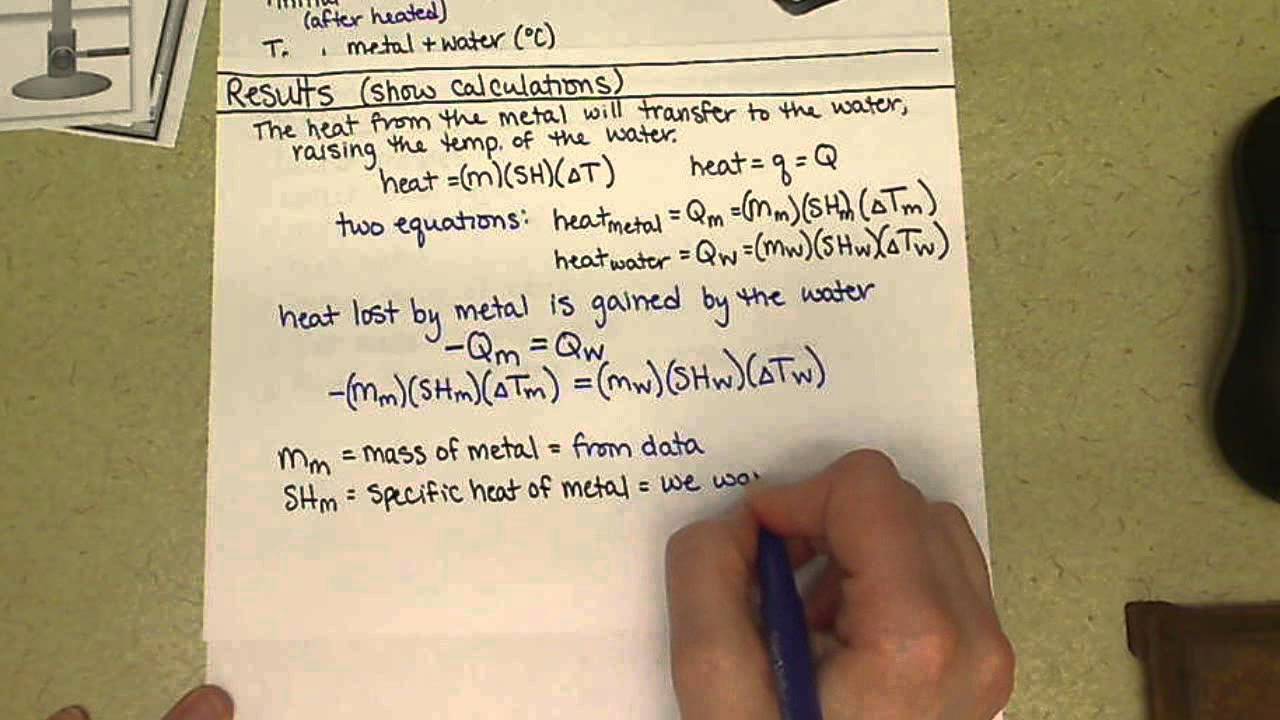 (after heated)
metal + water (°C)
Results (show calculations)
The heat from the metal will transfer to the water,
raising the temp. of the water.
heat = (m)(SH)(ΔT) heat = q = Q
two equations: heatmetal = Qm = (mm)(SHm)(ΔTm)
heatwater = Qw = (mw)(SHw)(ΔTw)
heat lost by metal is gained by the water
-Qm = Qw
-(mm)(SHm)(ΔTm) = (mw)(SHw)(ΔTw)
mm = mass of metal = from data
SHm = specific heat of metal = we